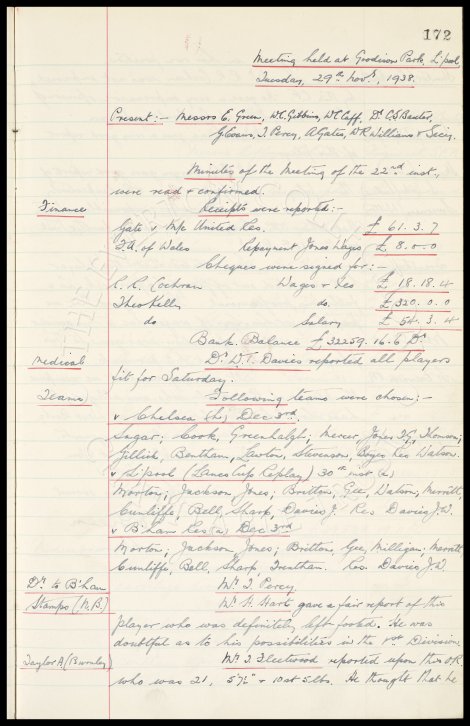 172
Meeting held at Goodison Park, L'pool
Tuesday, 29th Novr, 1938.
Present:- Messrs E. Green, W.C. Gibbins, W.C. Cuff, Dr C.S. Baxter,
G. Evans, T. Percy, A. Gates, W.R. Williams & Secy.
Minutes of the Meeting of the 22nd inst,
were read & confirmed.
Finance
Receipts were reported:-
Gate v M/c United Res. £ 61. 3. 7
F.A. of Wales Repayment Jones Wages £ 8. 0. 0
Cheques were signed for:-
R. R. Cochran Wages & Exs £ 18. 18. 4
Theo Kelly do. £320. 0. 0
do Salary £ 54. 3. 4
Bank Balance £32259. 16. 6 Dr
Medical
Dr W.T. Davies reported all players
fit for Saturday.
Teams
Following teams were chosen;-
v Chelsea (h) Dec 3rd.
Sagar; Cook, Greenhalgh; Mercer, Jones T.G, Thomson;
Gillick, Bentham, Lawton, Stevenson, Boyes Res Watson.
v L'pool (Lancs Cup Replay) 30th inst (h)
Morton; Jackson, Jones; Britton, Gee, Watson; Merritt,
Cunliffe, Bell, Sharp, Davies J. Res Davies J.W.
v B'ham Res (a) Dec 3rd
Morton; Jackson, Jones; Britton, Gee, Milligan, Merritt
Cunliffe, Bell, Sharp, Trentham. Res. Davies J.W.
Dr to B'ham
Mr T. Percy.
Stamps (N.B.)
Mr H. Hart gave a fair report of this
player who was definitely left footed. He was
doubtful as to his possibilities in the 1st Division
Taylor A (Burnley)
Mr T. Fleetwood reported upon this O.R.
who was 21, 5'7½" & 10st 5lbs. He thought that he